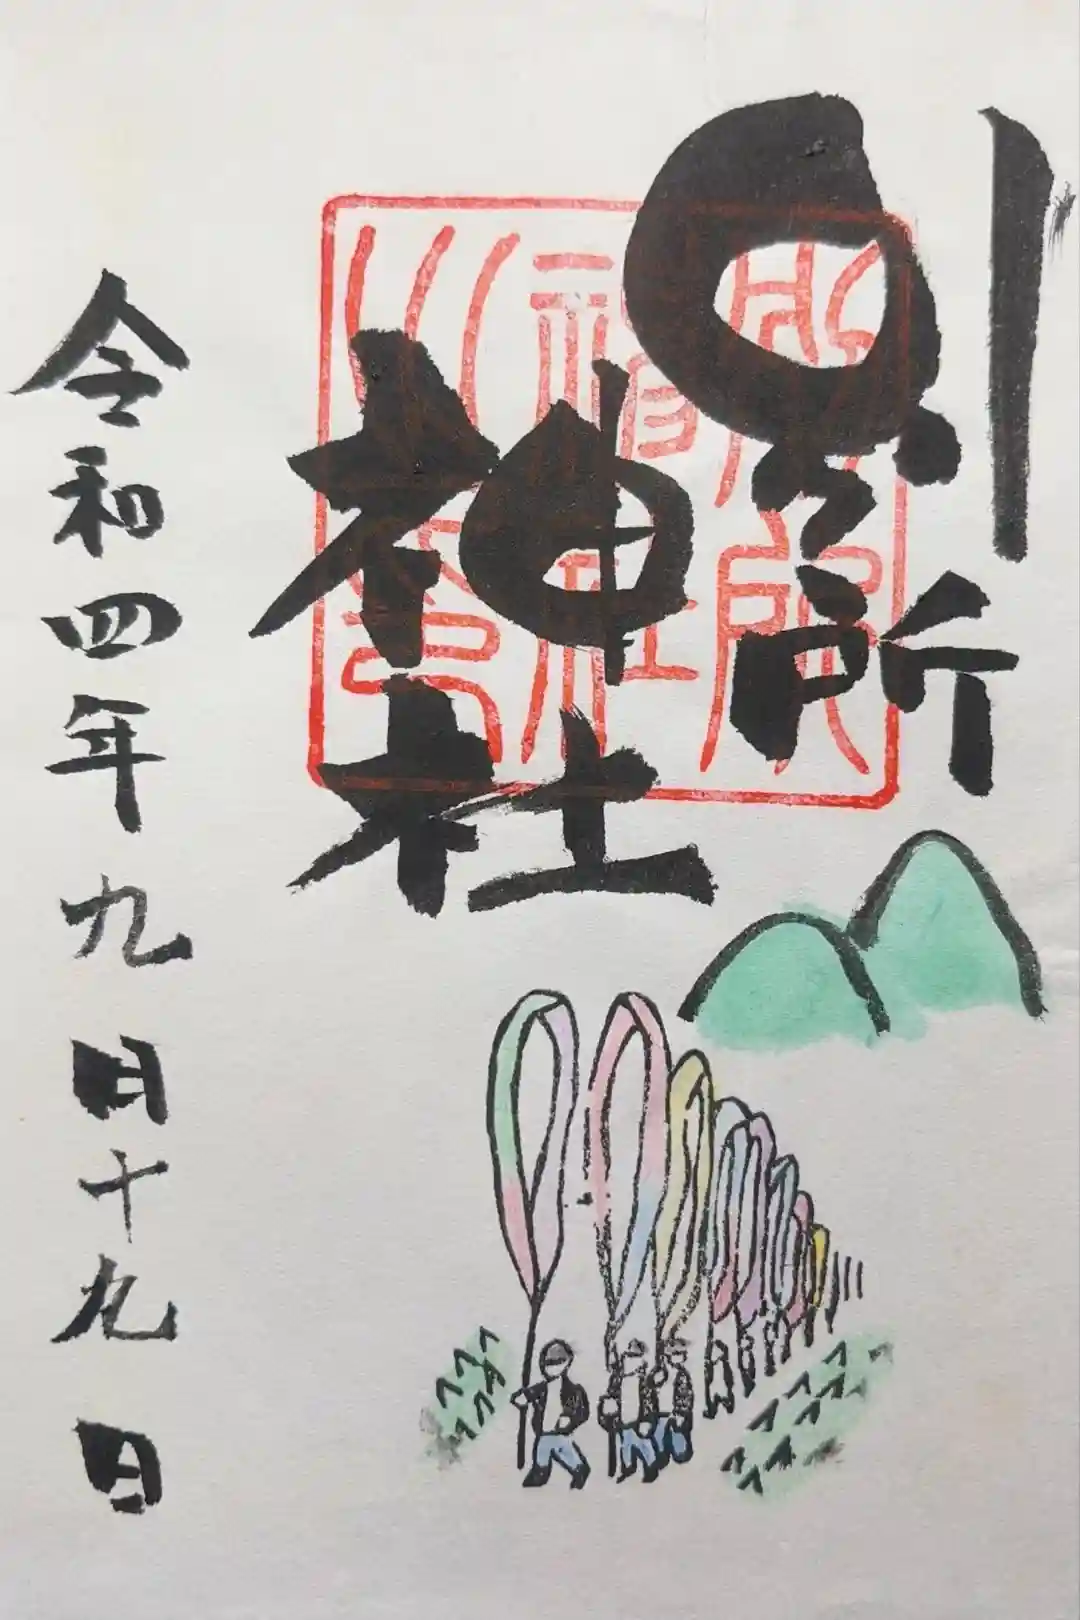 別所
神社
別所神社之印
令和四年九月十九日